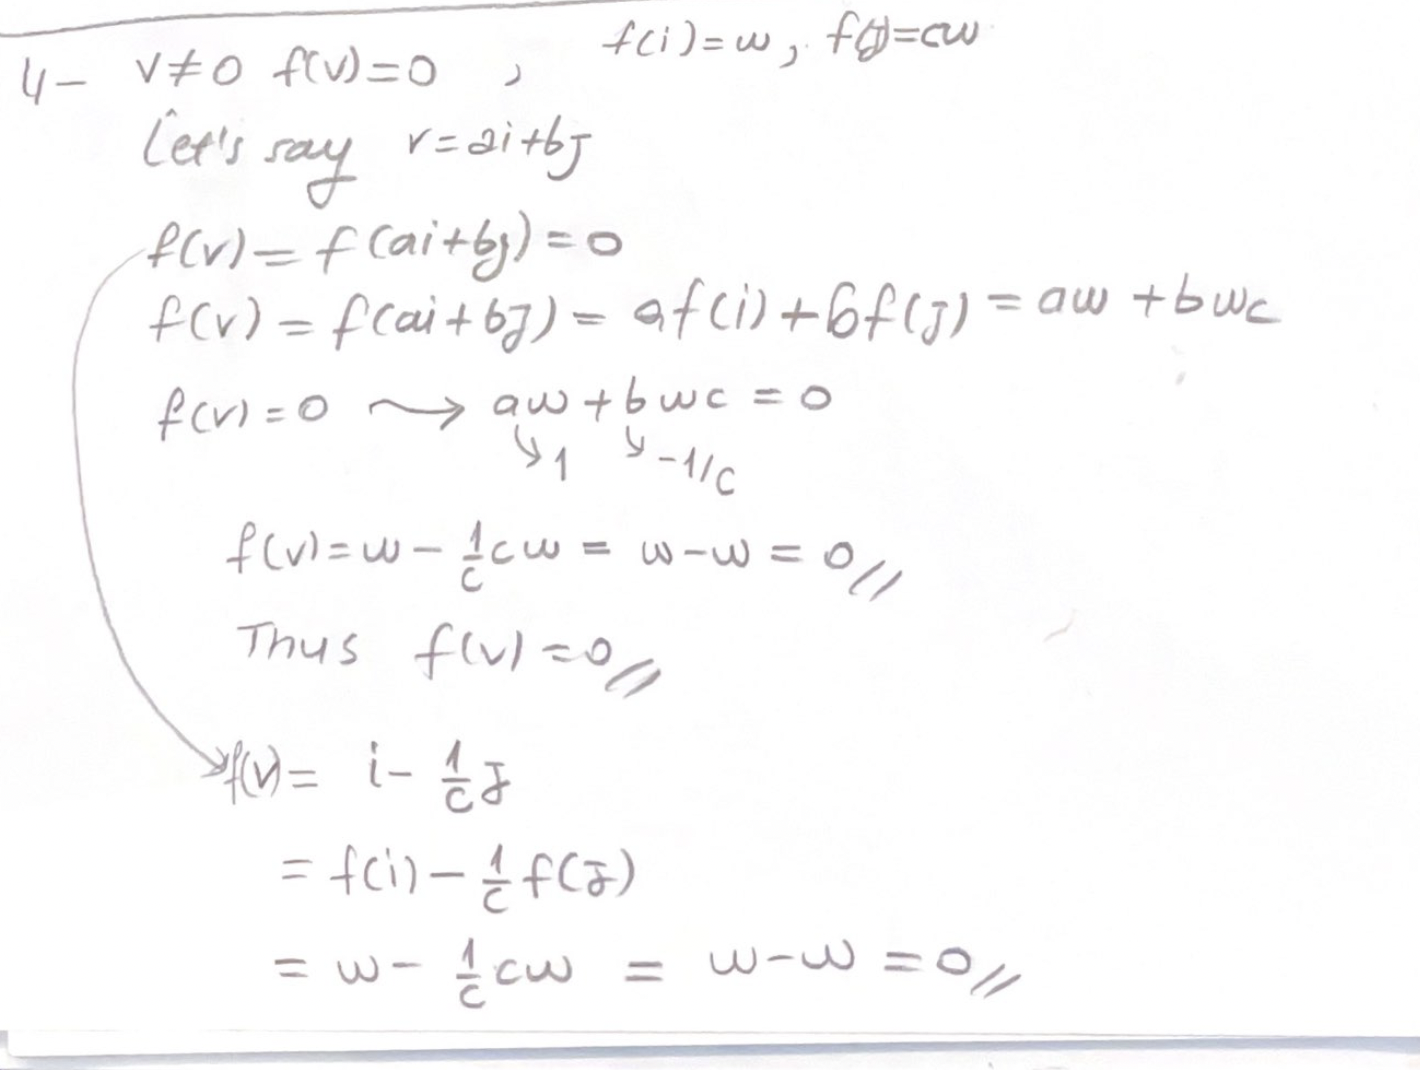 4- v≠0 f(v)=0 , f(i)=w, f(j)=cw
Let's say v=ai+bj
f(v)=f(ai+bj)=0
f(v)=f(ai+bj)=af(i)+bf(j)=aw+bwc
f(v)=0 → aw+bwc=0
↘1 ↘-1/c
f(v)=w-1/c cw=w-w=0//
Thus f(v)=0//
f(v)= i-1/c j
=f(i)-1/c f(j)
=w-1/c cw = w-w=0//